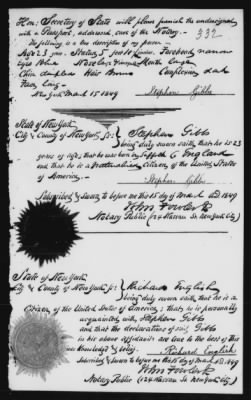 Hon: Secretary of State will please furnish the undersigned
with a Passport, addressed, care of the Notary.
332
The following is a true description of my person
Age 23 years, Stature 5 feet Forehead narrow
Eyes Nose large Mouth large
Chin dimpled Hair Brown Complexion dark
Face long
New York March 15 1849
Stephen Gibbs
State of New York
City & County of New York } ss: Stephen Gibbs
being duly sworn saith, that he is 23
years of age, that he was born in Suffolk Co England
and that he is a naturalized citizen of the United States
of America,
Stephen Gibbs
Subscribed & Sworn to before me this 15 day of March A.D. 1849
John Fowler Jr
Notary Public (24 Nassau St. New York City)
State of New York
City & County of New York } ss: Richard English
being duly sworn saith, that he is a
Citizen of the United States of America, that he is personally
acquainted with, Stephen Gibbs
and that the declarations of said Gibbs
in his above affidavit are true to the best of his
Knowledge & being.
Richard English
Subscribed & Sworn to before me this 15 day of March A.D. 1849
John Fowler Jr
Notary Public (24 Nassau St. New York City)